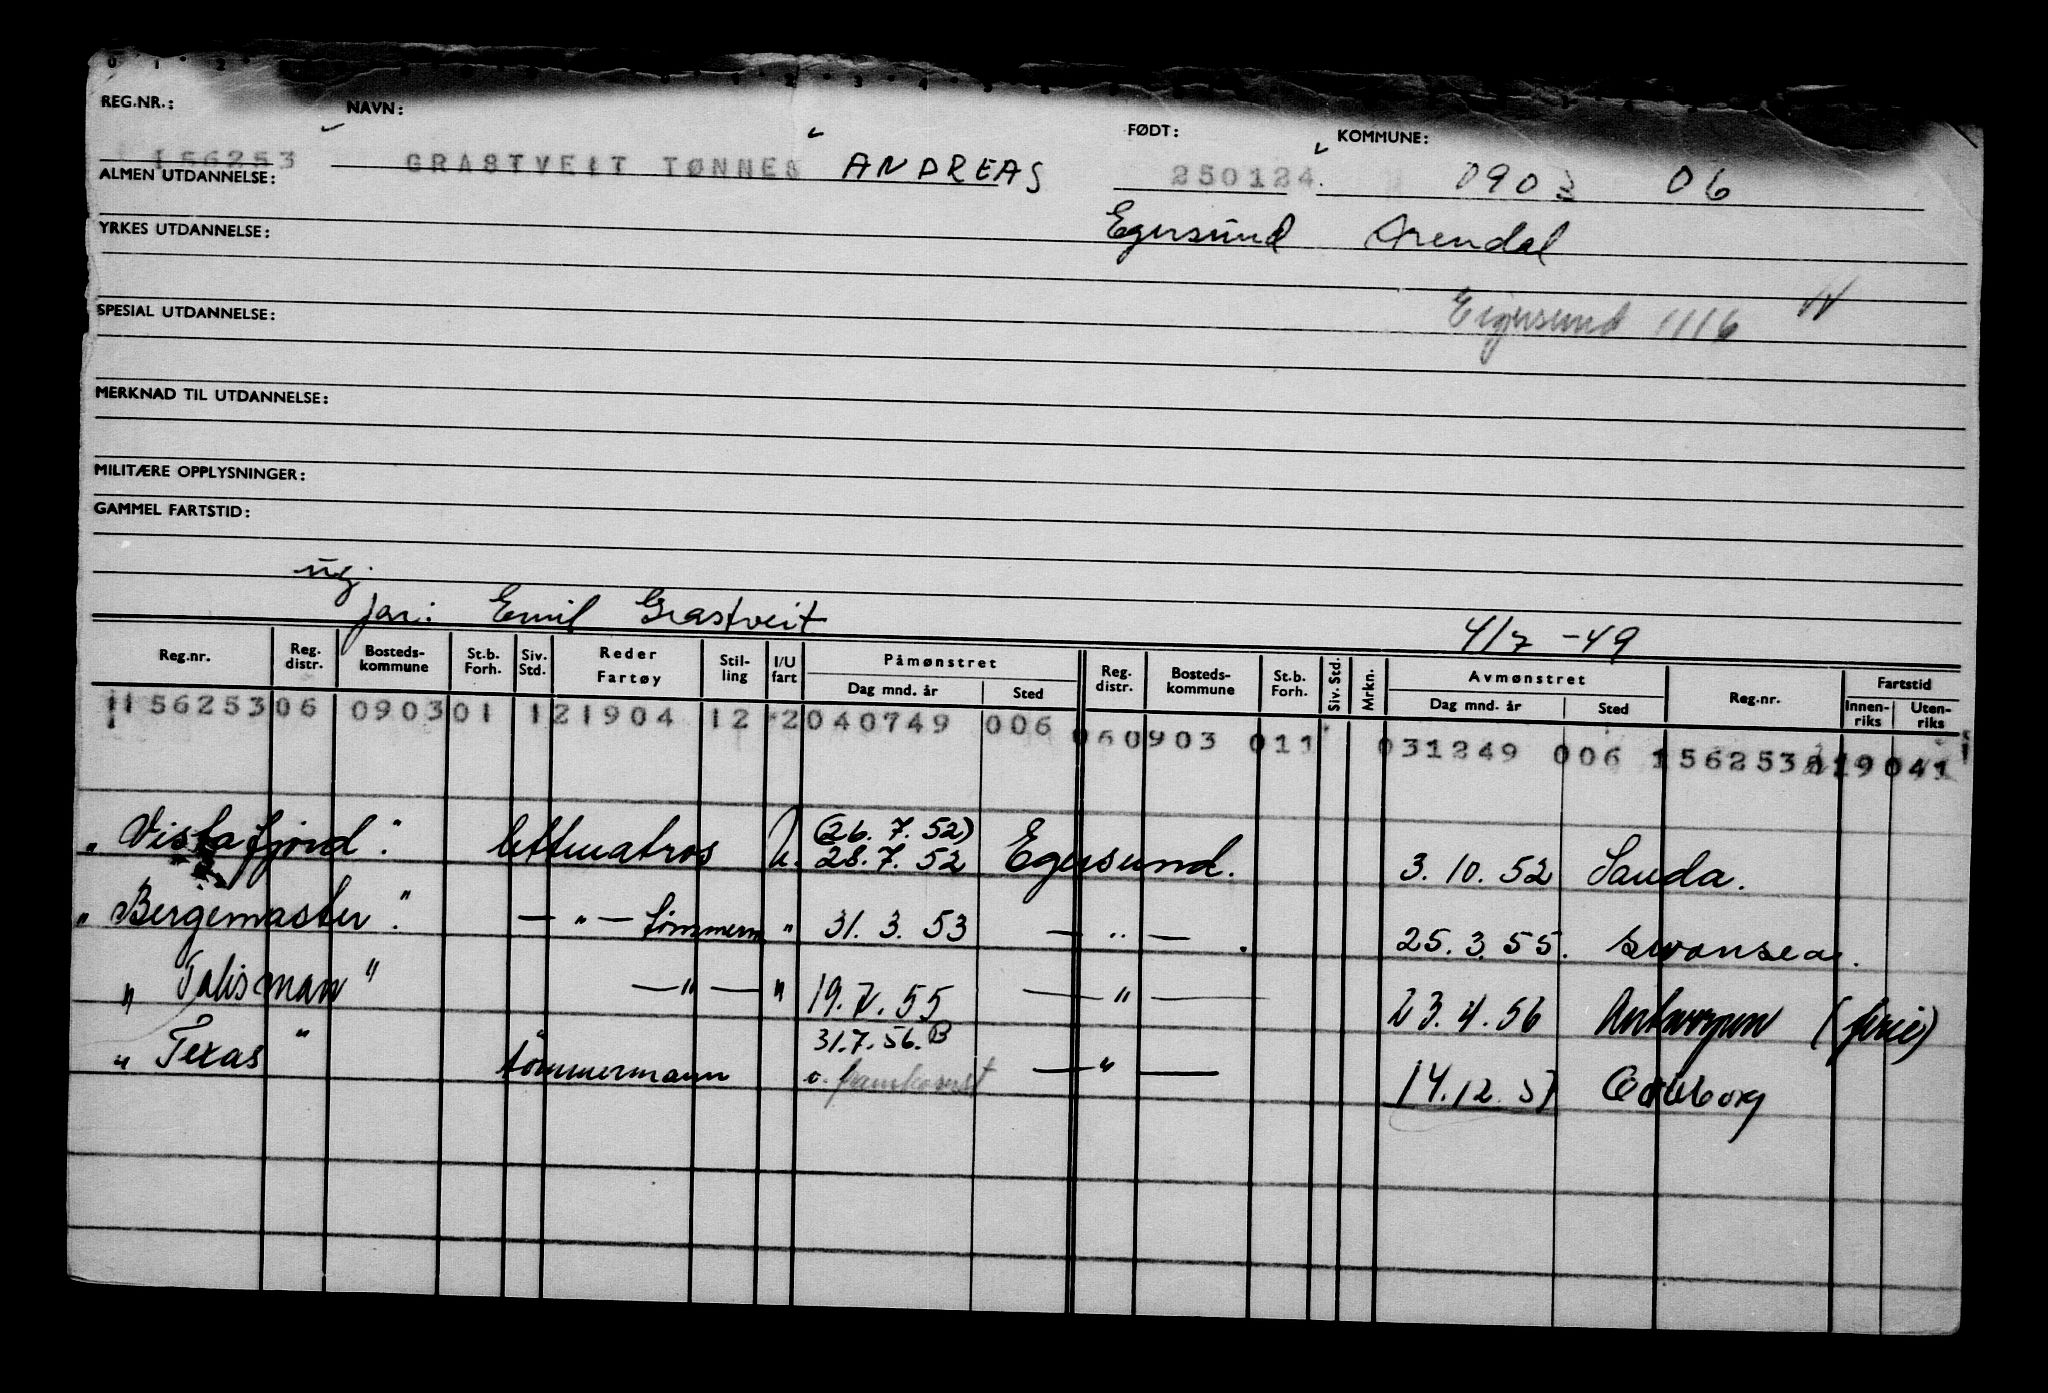 REG.NR.: NAVN: FØDT: KOMMUNE:
156253 GRASTVEIT TØNNES ANDREAS 250124 0903 06
ALMEN UTDANNELSE:
Egersund Arendal
YRKES UTDANNELSE:
Eigersund 1116
SPESIAL UTDANNELSE:
MERKNAD TIL UTDANNELSE:
MILITÆRE OPPLYSNINGER:
GAMMEL FARTSTID:
ug.
far: Emil Grastveit 4/7 -49
Reg.nr. Reg. distr. Bosteds- kommune St.b. Forh. Siv. Std. Reder Fartøy Stil- ling I/U fart Påmønstret Dag mnd. år Sted Reg. distr. Bosteds- kommune St.b. Forh. Siv. Std. Mrkn. Avmønstret Dag mnd. år Sted Reg.nr. Fartstid Innen- riks Uten- riks
156253 06 0903 01 1 21904 12 2 040749 006 06 0903 011 031249 006 156253 19041
(26. 7. 52)
"Vistafjord". lettmatros U. 28. 7. 52 Egersund. 3. 10. 52 Sauda.
"Bergemaster". — " — tømmerm " 31. 3. 53 — " — . 25. 3. 55. Swansea.
"Talisman" — " — " 19. 7. 55 — " — 23. 4. 56 Antwerpen (ferie)
31.7.56. B
"Texas" tømmermann o. framkomst — " — 14. 12. 57 Göteborg